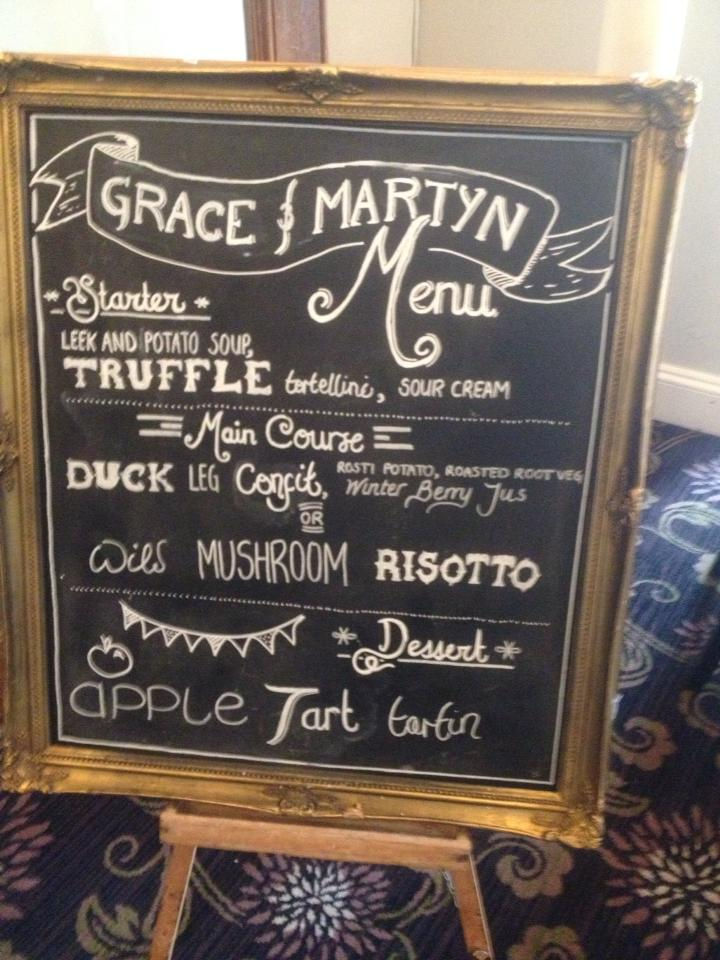 GRACE & MARTYN
Menu
* Starter *
LEEK AND POTATO SOUP,
TRUFFLE tortellini, SOUR CREAM
Main Course
DUCK LEG Confit, ROSTI POTATO, ROASTED ROOT VEG
Winter Berry Jus
OR
Wild MUSHROOM RISOTTO
* Dessert *
apple Tart tartin